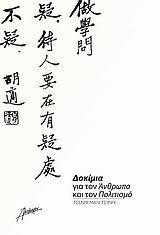 做學問
疑，待人要在有疑處
不疑。
胡適
Δοκίμια
για τον Άνθρωπο
και τον Πολιτισμό
ΤΣΕΝΓΚ ΜΑΝ-ΤΣΙΝΓΚ